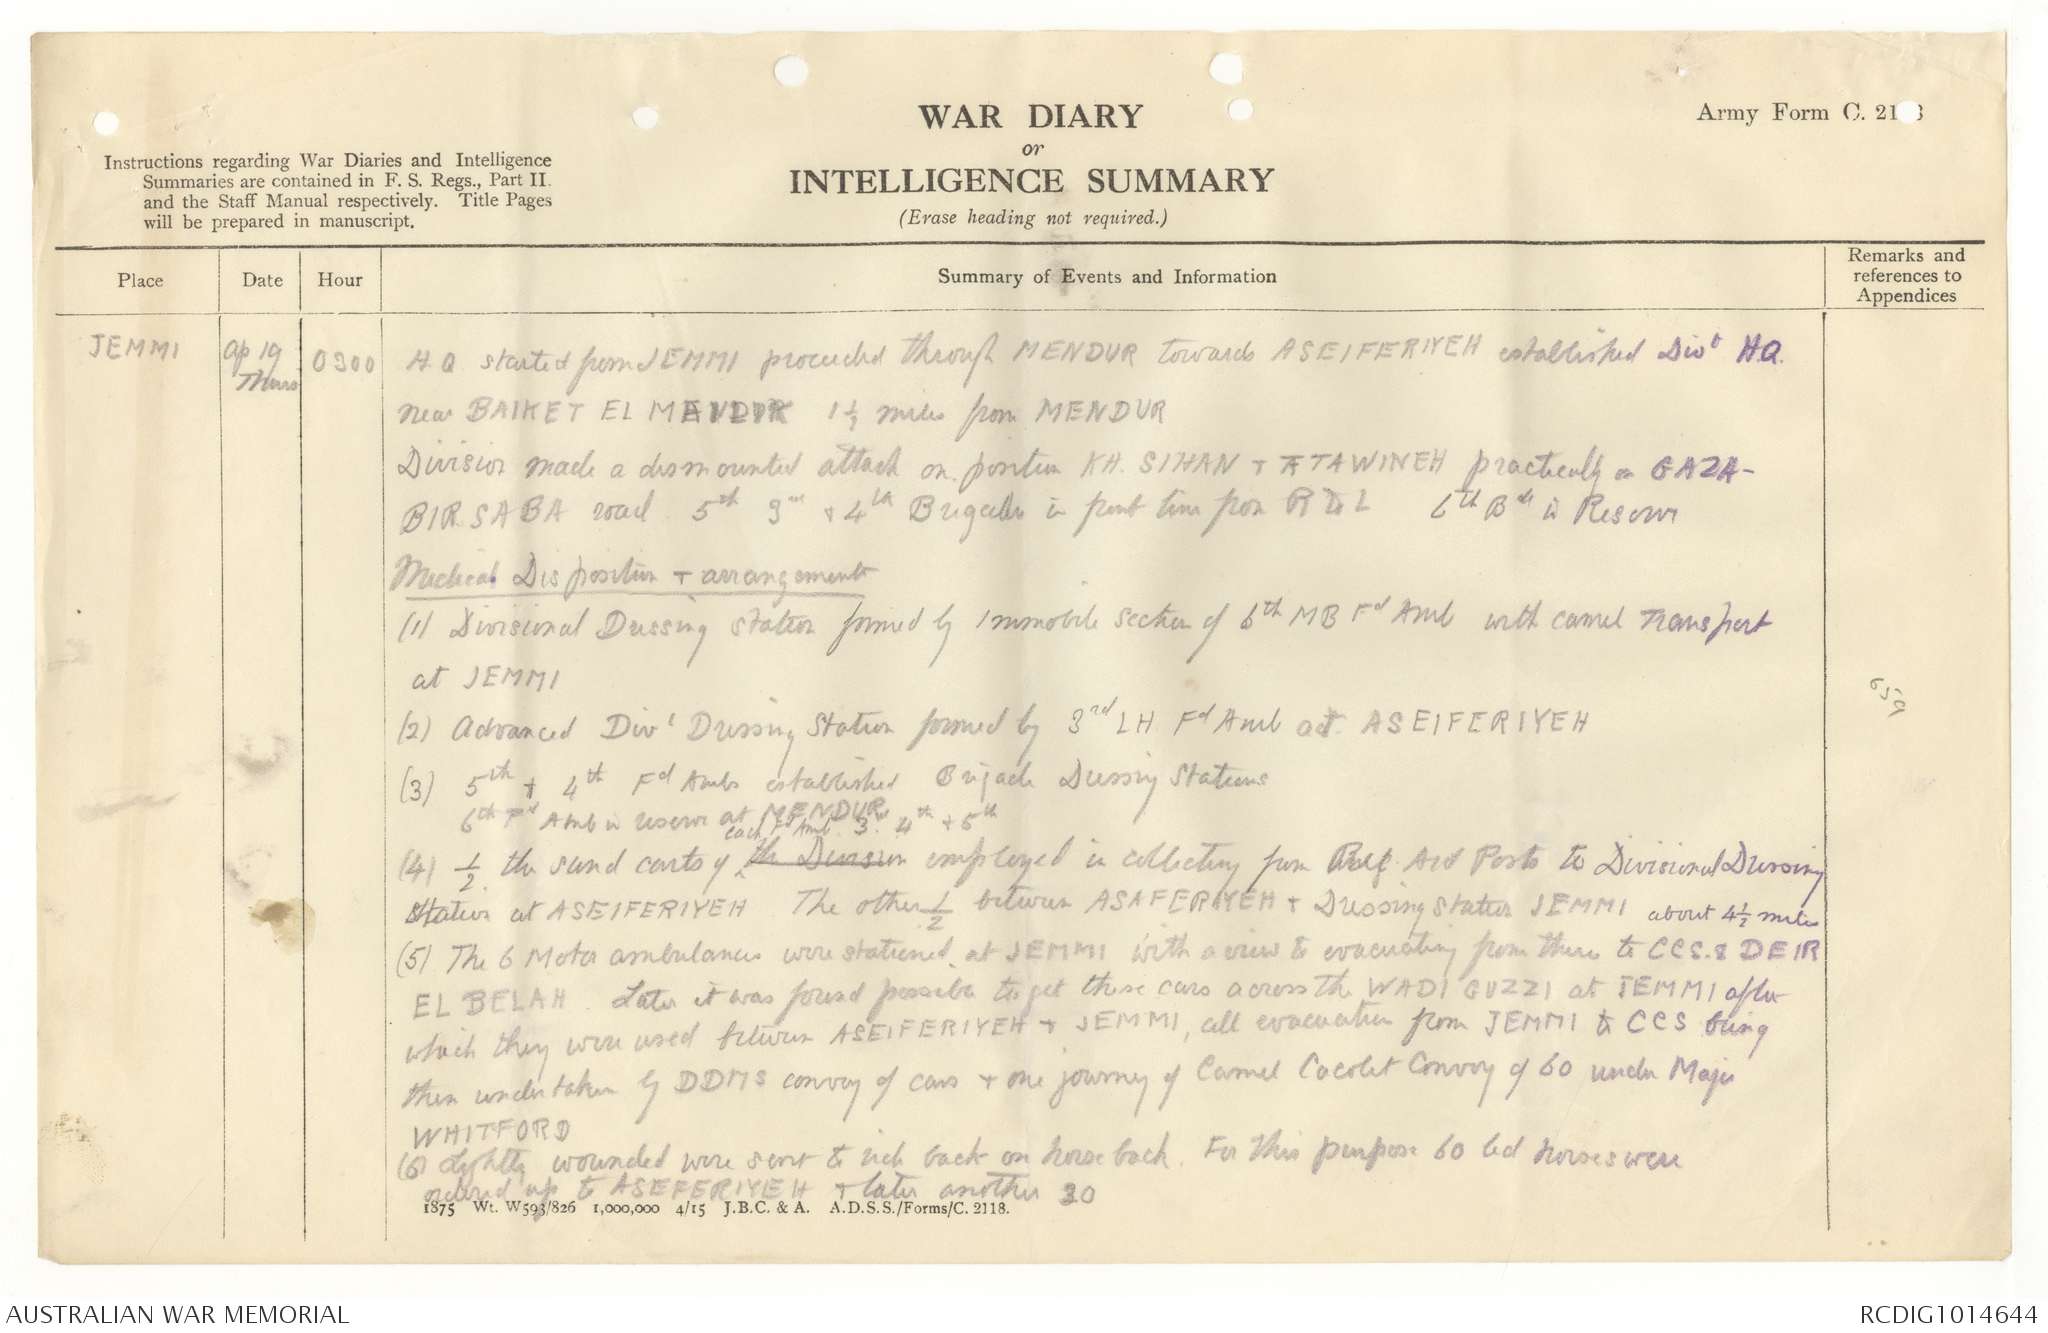 WAR DIARY
or
INTELLIGENCE SUMMARY
(Erase heading not required.)
Army Form C. 2118
Instructions regarding War Diaries and Intelligence
Summaries are contained in F. S. Regs., Part II.
and the Staff Manual respectively. Title Pages
will be prepared in manuscript.
Place Date Hour Summary of Events and Information Remarks and
references to
Appendices
JEMMI Ap 19 Thurs 0300 H.Q. started from JEMMI proceeded through MENDUR towards ASEIFERIYEH established Divl HQ.
near BAIKET EL MENDUR 1½ miles from MENDUR
Division made a dismounted attack on position KH. SIHAN + ATAWINEH practically on GAZA-
BIR SABA road 5th 3rd + 4th Brigades in front line from R to L 6th Bde in Reserve
Medical Disposition + arrangements
(1) Divisional Dressing Station formed by Immobile section of 6th MB Fd Amb with camel Transport
at JEMMI
(2) Advanced Divl Dressing Station formed by 3rd LH Fd Amb at ASEIFERIYEH
(3) 5th + 4th Fd Ambs established Brigade Dressing Stations
6th Fd Amb in reserve at MENDUR
each Fd Amb 3rd 4th + 5th
(4) ½ the sand carts of the Division employed in collecting from Reg Aid Posts to Divisional Dressing
Station at ASEIFERIYEH The other ½ between ASAFERIYEH + Dressing Station JEMMI about 4½ miles
(5) The 6 Motor ambulances were stationed at JEMMI with a view to evacuating from there to CCS. 8 DEIR
EL BELAH. Later it was found possible to get these cars across the WADI GUZZI at JEMMI after
which they were used between ASEIFERIYEH + JEMMI, all evacuation from JEMMI to CCS being
then undertaken by DDMS convoy of cars + one journey of Camel Cacolet Convoy of 60 under Major
WHITFORD
(6) Lightly wounded were sent to rick back on horseback. For this purpose 60 led horses were
ordered up to ASEFERIYEH + later another 30
659
1875 Wt. W593/826 1,000,000 4/15 J.B.C. & A. A.D.S.S./Forms/C. 2118.
AUSTRALIAN WAR MEMORIAL
RCDIG1014644